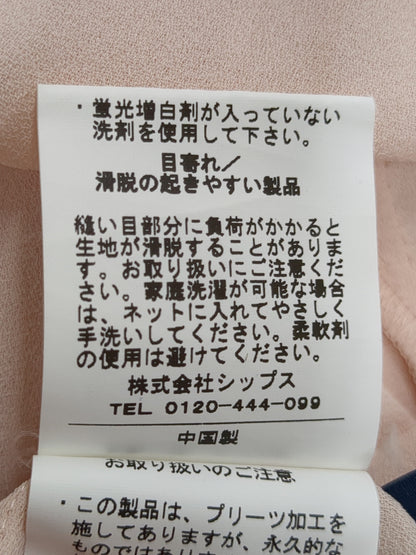 ・蛍光増白剤が入っていない
洗剤を使用して下さい。
目寄れ／
滑脱の起きやすい製品
縫い目部分に負荷がかかると
生地が滑脱することがありま
す。お取り扱いにご注意くだ
さい。家庭洗濯が可能な場合
は、ネットに入れてやさしく
手洗いしてください。柔軟剤
の使用は避けてください。
株式会社シップス
TEL 0120-444-099
中国製
お取り扱いのご注意
・この製品は、プリーツ加工を
施してありますが、永久的な
ものではありま